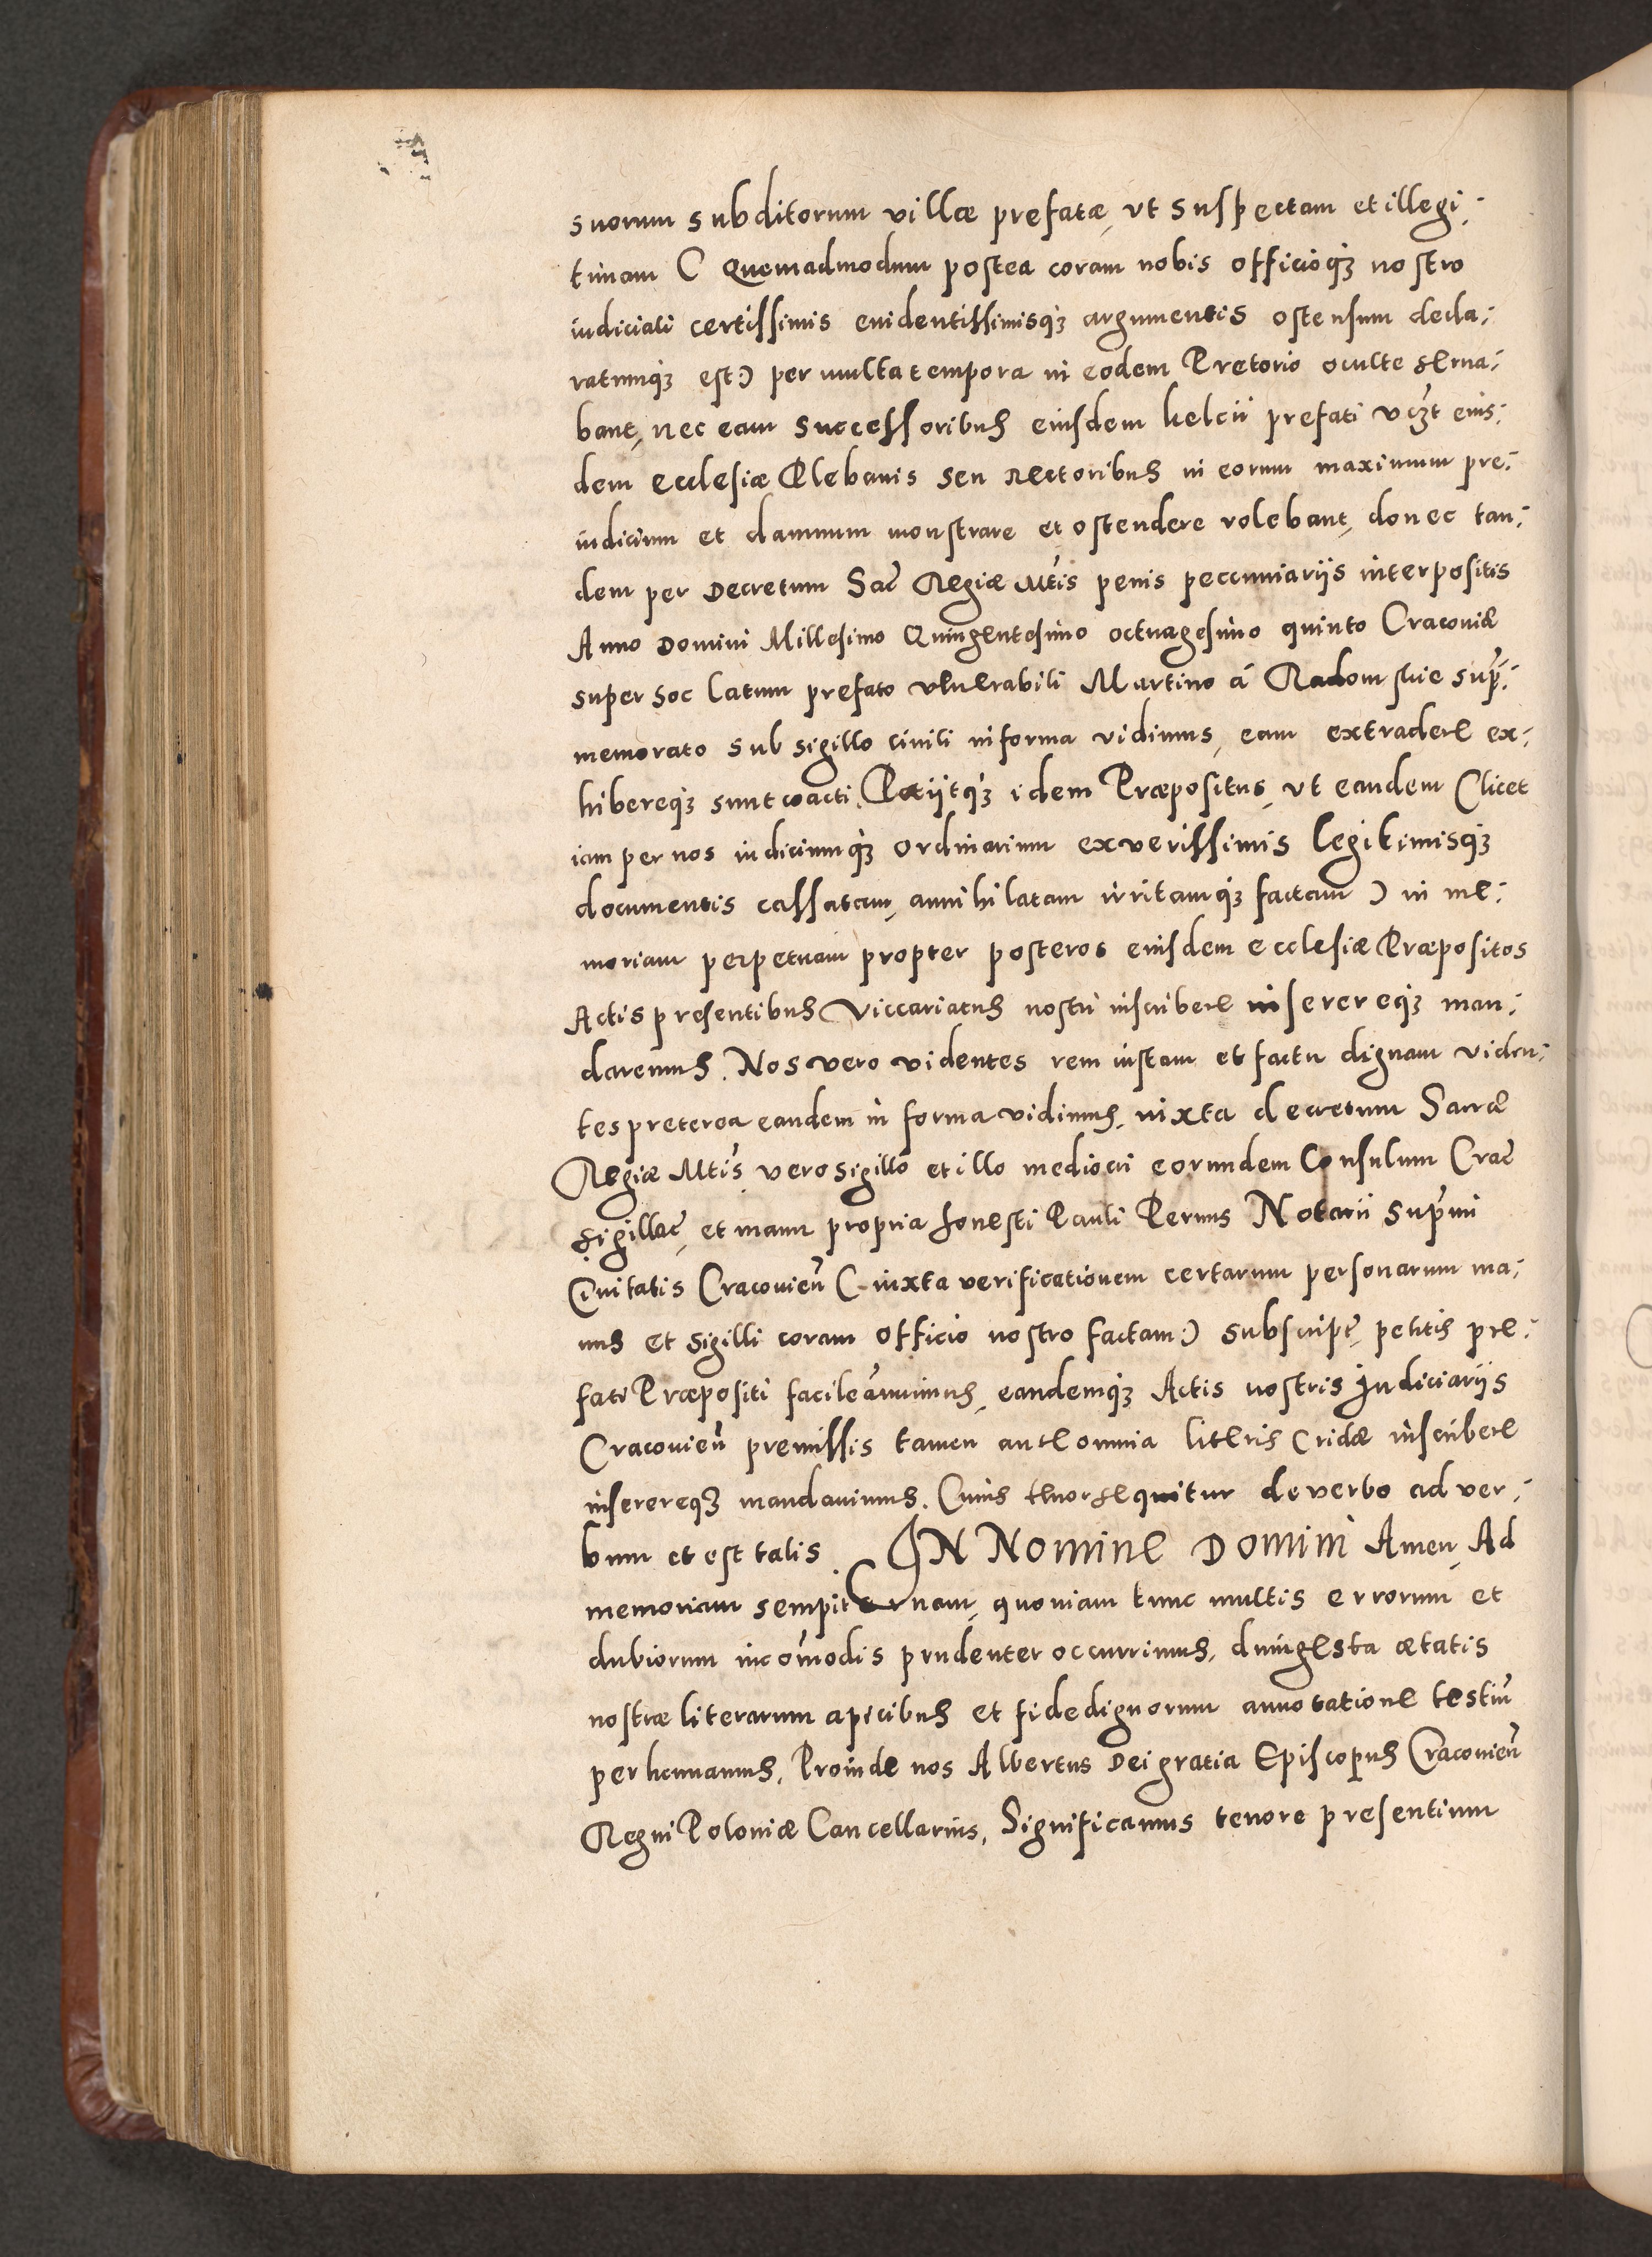 suorum subditorum villæ prefatæ, ut suspectam et illegi:
timam (Quemadmodum postea coram nobis officioq₃ nostro
iudiciali certissimis euidentissimisq₃ argumentis ostensum decla:
ratumq₃ est) per multa tempora in eodem Pretorio oculte serua:
bant, nec eam successoribus eiusdem kelcii prefati vcꝫt eius:
dem ecclesiæ Plebanis seu rectoribus in eorum maximum pre:
iudicium et damnum monstrare et ostendere volebant, donec tan:
dem per Decretum Sac̃ Regiæ Mtis penis peccuniariis interpositis
Anno Domini Millesimo Quingentesimo octuagesimo quinto Cracoviæ
super hoc latum prefato venerabili Martino á Radomskie sup̃:
memorato sub sigillo civili in forma vidimus, eam extradere ex:
hibereq₃ sunt coacti. Petiitq₃ idem Præpositus, ut eandem (licet
iam per nos iudiciumq₃ ordinarium ex verissimis legitimisq₃
documentis cassatam, annihilatam irritamq₃ factam) in me:
moriam perpetuam propter posteros eiusdem ecclesiæ Præpositos
Actis presentibus Viccariatus nostri inscribere inserereq₃ man:
daremus. Nos vero videntes rem iustam et factu dignam viden:
tes preterea eandem in forma vidimus, iuxta decretum Sacræ
Regiæ Mtis vero sigillo et illo mediocri eorundem Consulum Crac̃
sigillat̃, et manu propria honesti Pauli Pernus Notarii sup̃mi
Civitatis Cracovieñ (iuxta verificationem certarum personarum ma:
nus et sigilli coram officio nostro factam) subscript̃, petitis pre:
fati Præpositi facile ánnuimus, eandemq₃ Actis nostris Iudiciariis
Cracovieñ premissis tamen ante omnia literis Cridæ inscribere
inserereq₃ mandavimus. Cuius tenor sequitur de verbo ad ver:
bum et est talis. IN Nomine Domini Amen, Ad
memoriam sempiternam, quoniam tunc multis errorum et
dubiorum incom̃odis prudenter occurrimus, dum gesta ætatis
nostræ literarum apicibus et fidedignorum annotatione testiũ
perhennamus, Proinde nos Albertus Dei gratia Episcopus Cracovieñ
Regni Poloniæ Cancellarius, Significamus tenore presentium